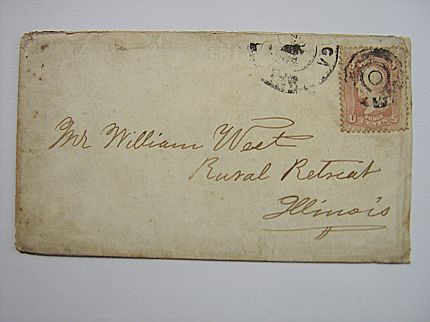 GA
U S
CENTS
Mr William West
Rural Retreat
Illinois